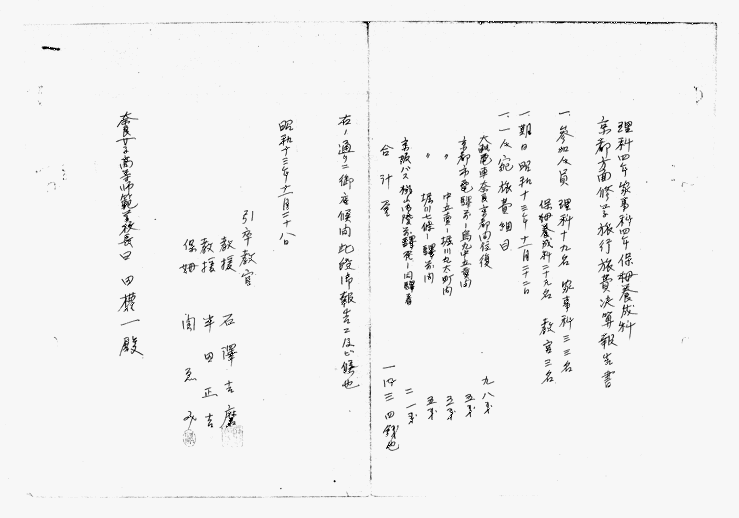 理科四年家事科四年保姆養成科
京都方面修学旅行旅費決算報告書
一、参加人員 理科十九名 家事科三三名
保姆養成科二十九名 教官三名
一、期日 昭和十三年十一月二十二日
一、一人宛旅費細目
大軌電車奈良京都間往復 九八銭
京都市電 駅前ー烏丸中立売間 五銭
〃 中立売ー堀川丸太町間 五銭
〃 堀川七條ー駅前間 五銭
京阪バス 桃山御陵前 間 二一銭
合計金 一円三四銭也
右ノ通リニ御座候間此段御報告ニ及ビ候也
昭和十三年十一月二十八日
引率教官
教授 石澤吉磨
教授 半田正吉
保姆 関 ゑみ
奈良女子高等師範学校長 田 権一殿